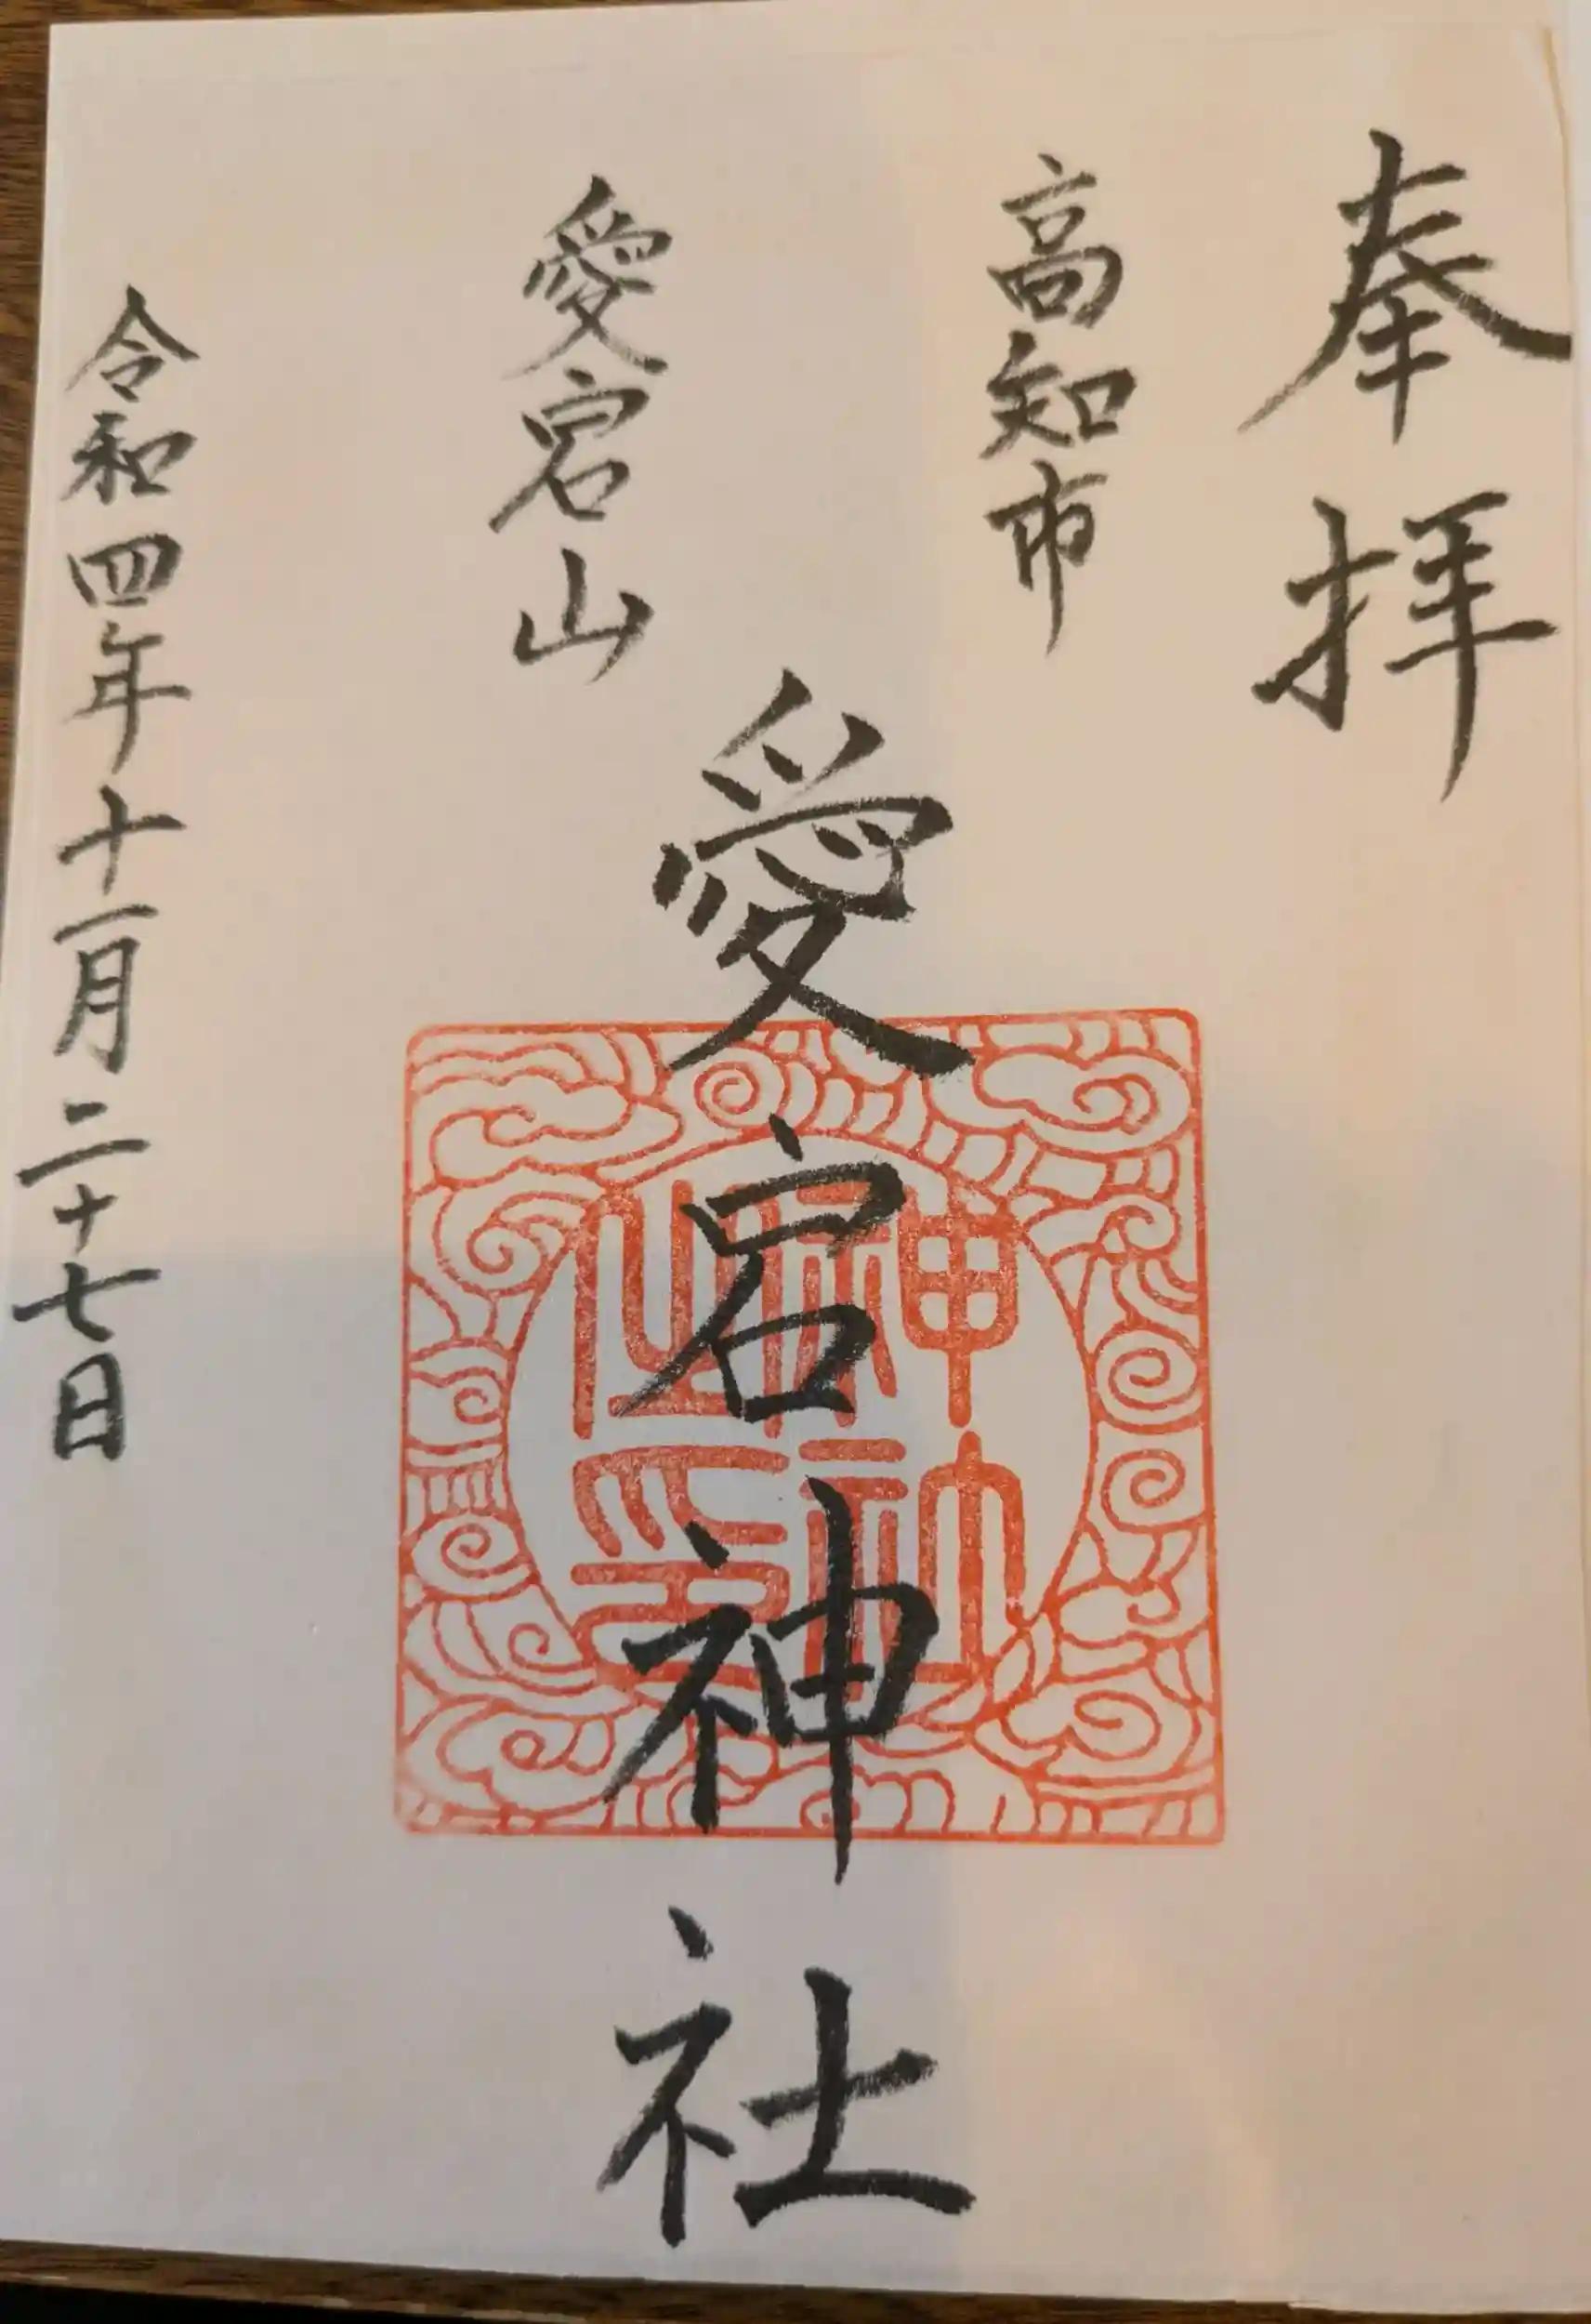 奉拝
高知市
愛宕神社
愛宕山
令和四年十一月二十七日
神社
之印